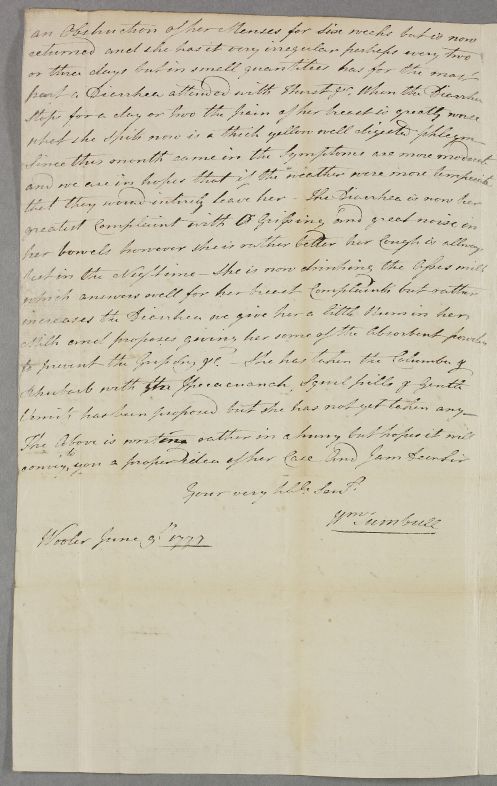 an Obstruction of her Menses for Six weeks but is now
returned and she has it very irregular perhaps every two
or three days but in small quantities has for the most
part a Diarrhea attended with Thirst &c. When the Diarrhea
stops for a day or two the pain of her breast is greatly worse
what she spits now is a thick yellow well digested phlegm
Since this month came in the Symptoms are more moderate
and we are in hopes that if the weather were more temperate
that they would intirely leave her - The Diarrhea is now her
greatest Complaint with Gripping and great noise in
her bowels however she is rather better her Cough is allways
in the Night time - She is now drinking the Asses milk
which answers well for her breast Complaints but rather
increases the Diarrhea we give her a little Rum in her
Milk and proposes giving her some of the Absorbent powders
to prevent the Griping &c - She has taken the Columba &
Rhubarb with the Ipecacuanh. Squil pills & Gentle
Vomits has been proposed but she has not yet taken any -
The Above is written rather in a hurry but hopes it will
convey to you a proper Idea of her Case And I am Dear Sir
Your very hble Servt.
Wm Turnbull
Wooler June 9th 1777